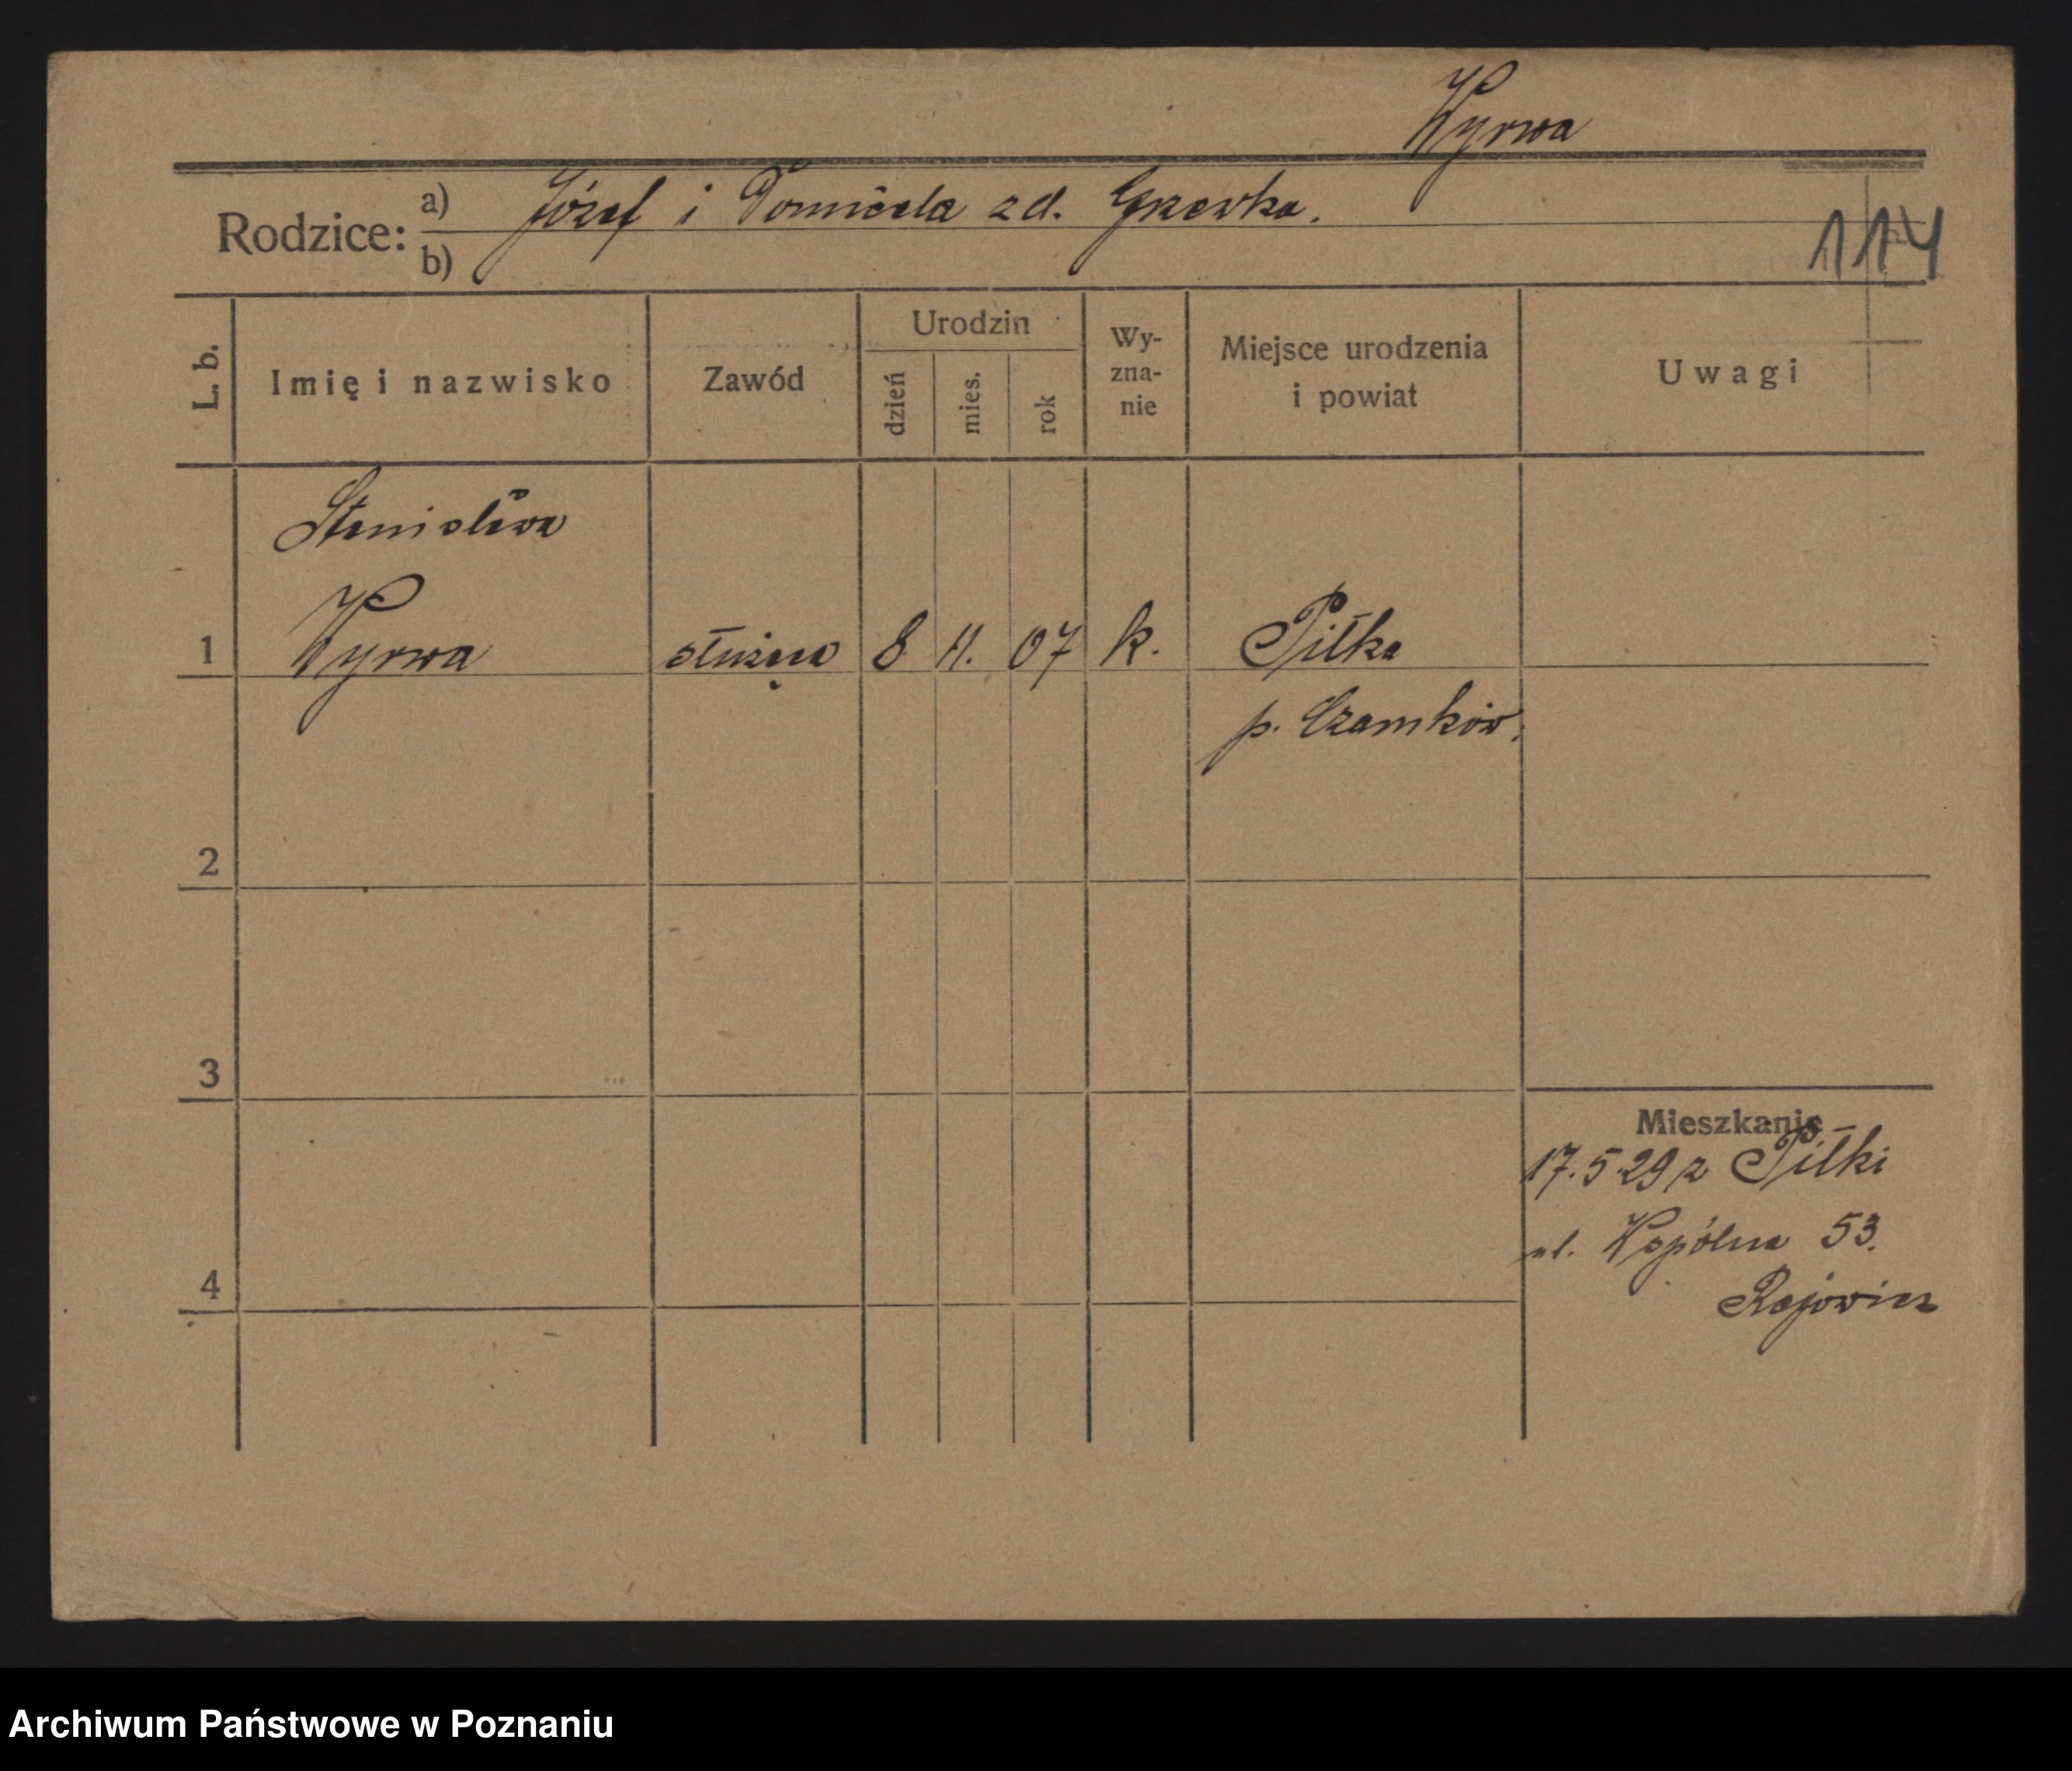 Wyrwa
Rodzice: a) Józef i Domicela zd. Grzewka.
b)
114
L. b. Imię i nazwisko Zawód Urodzin dzień mies. rok Wy-zna-nie Miejsce urodzenia i powiat Uwagi
Stanisława
1 Wyrwa służąca 8 11. 07 k. Piłka
p. Czarnków.
2
3
Mieszkanie
17.5.29 z Piłki
ul. Wspólna 53.
4
Archiwum Państwowe w Poznaniu